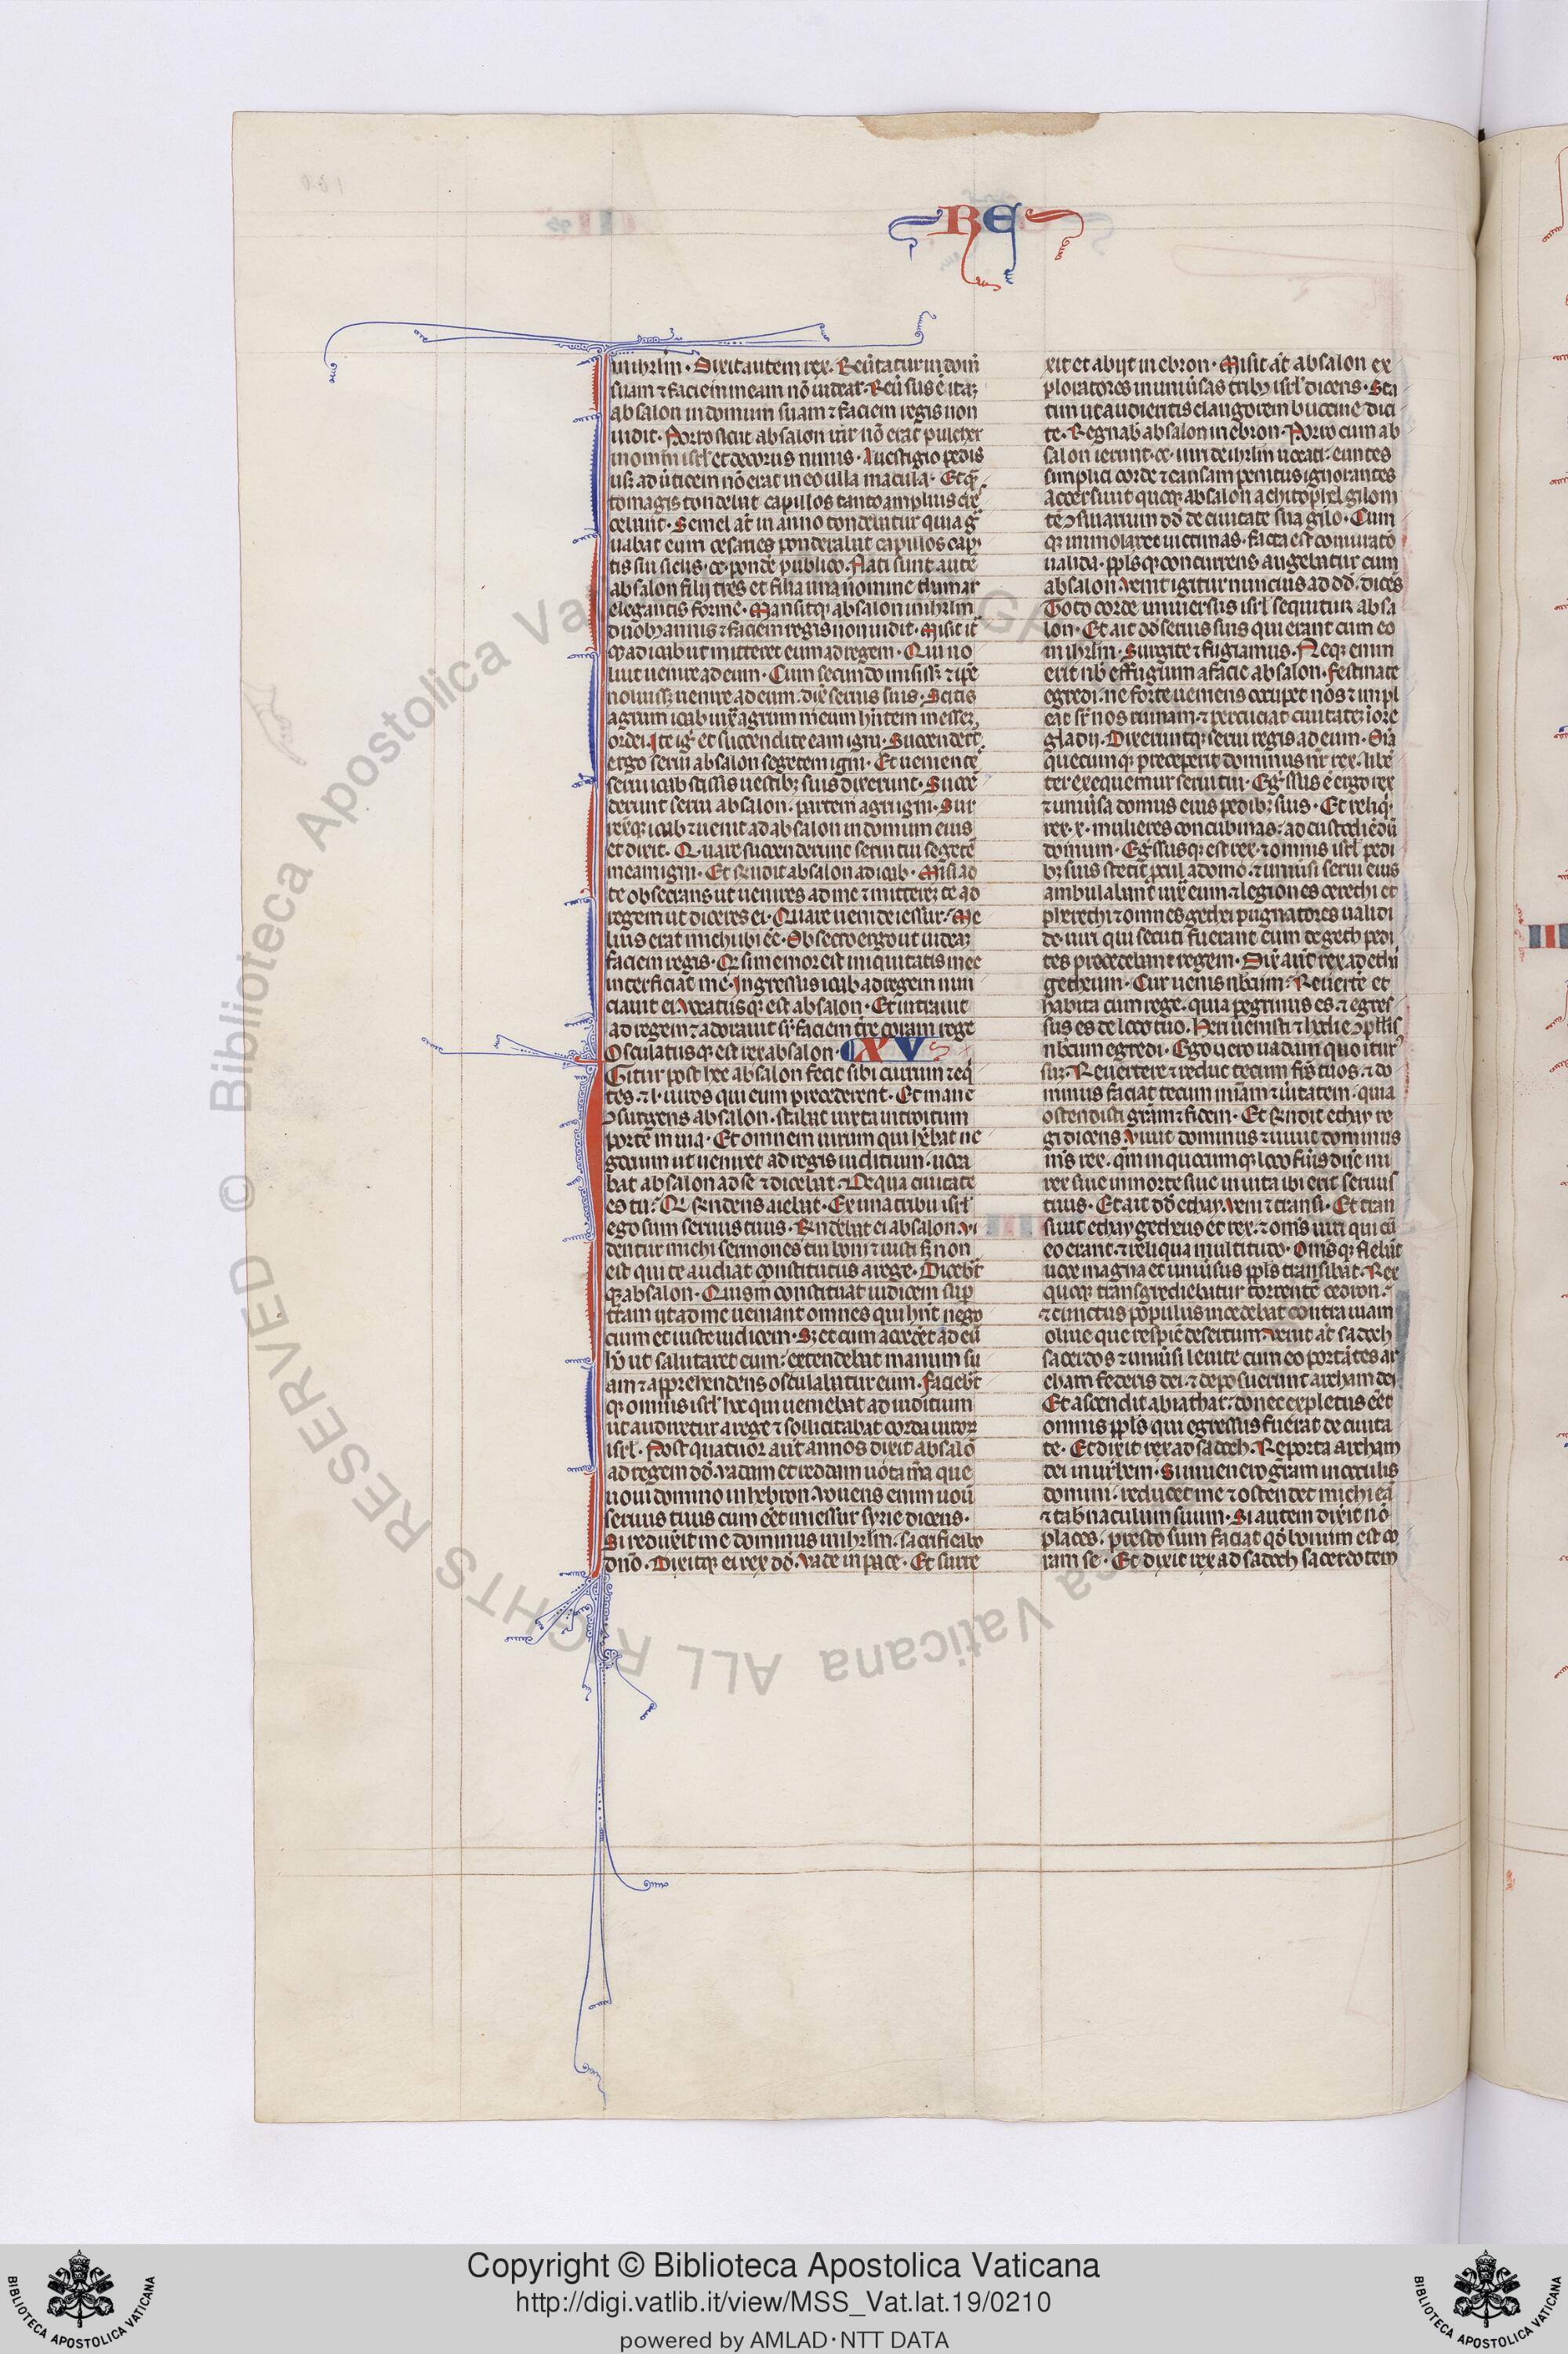 RE
in ihrlm̅. Dixit autem rex. Reu̅tatur in domu̅
suam ⁊ faciem meam no̅ uideat. Reu̅sus e̅ itaq;
absalon in domum suam ⁊ faciem regis non
uidit. Porro sicut absalon uir no̅ erat pulcher
in om̅i isrl̅ et decorus nimis. A uestigio pedis
usq; ad u̅ticem no̅ erat in eo ulla macula. Et q̅n
to magis tondebat capillos tanto amplius cre
cebant. Semel at̅ in anno tondebatur quia g̅
uabat eum cesaries ponderabat capillos capi
tis sui siclis .cc. ponde̅ publico. Nati sunt aute̅
absalon filij tres et filia una nomine thamar
elegantis forme. Mansitq; absalon in ihrlm̅
duob; annis ⁊ faciem regis non uidit. Misit it
q; ad ioab ut mitteret eum ad regem. Qui no
luit uenire ad eum. Cum secundo misiss; ⁊ ip̅e
noluiss; uenire ad eum. dix̅ seruis suis. Scitis
agrum ioab iux̅ agrum meum h̅ntem messez
ordei. Ite ig̅ et succendite eam igni. Succendert̅
ergo serui absalon segetem igni. Et uenientes
serui ioab scissis uestib; suis dixerunt. Succe̅
derunt serui absalon partem agri igni. Sur
rexitq; ioab ⁊ uenit ad absalon in domum eius
et dixit. Quare succenderunt serui tui segete̅
meam igni. Et r̅ndit absalon ad ioab. Misi ad
te obsecrans ut uenires ad me ⁊ mittere; te ad
regem ut diceres ei. Quare ueni de iessur. Me
lius erat michi ibi e̅e. Obsecro ergo ut uidea;
faciem regis. Q̅ si memor est iniquitatis mee
interficiat me. Ingressus ioab ad regem nun
ciauit ei. Vocatusq; est absalon. Et intrauit
ad regem ⁊ adorauit sr̅ faciem t̅re coram rege
Osculatusq; est rex absalon. XV
Gitur post hec absalon fecit sibi currum ⁊ eq̅
tes. ⁊ .l. uiros qui eum precederent. Et mane
ↄsurgens absalon. stabat iuxta introitum
porte in uia. Et omnem uirum qui h̅ebat ne
gocium ut ueniret ad regis iudicium. uoca
bat absalon ad se ⁊ dicebat. De qua ciuitate
es tu? Q̅ r̅ndens aiebat. Ex una tribu isrl̅
ego sum seruus tuus. R̅ndebat ei absalon. Vi
dentur michi sermones tui boni ⁊ iusti s; non
est qui te audiat constitutus a rege. Diceb̅t
q; absalon. Quis m̅ constituat iudicem sup̅
t̅ram ut ad me ueniant omnes qui h̅nt nego
cium et iuste iudicem. S; et cum accedet̅ ad eu̅
ho̅ ut salutaret eum: extendebat manum su
am ⁊ apprehendens osculabatur eum. Facieb̅t
q; omnis isrl̅ hoc qui ueniebat ad iuditium
ut audiretur a rege ⁊ sollicitabat corda uiror̅
isrl̅. Post quatuor aut̅ annos dixit absalo̅
ad regem dd̅. Vadam et reddam uota m̅a que
uoui domino in hebron. Vouens enim uoui
seruus tuus cum ee̅t in iessur syrie dicens.
Si reduxe̅it me dominus in ihrlm̅. sacrificabo
dn̅o. Dixitq; ei rex dd̅. Vade in pace. Et surre
xit et abijt in ebron. Misit at̅ absalon ex
ploratores in uniu̅sas trib; isrl̅ dicens. Sta
tim ut audieritis clangorem buccine dici
te. Regnab̅ absalon in ebron. Porro cum ab
salon ierunt .cc. uiri de ihrlm̅ uocati. euntes
simplici corde ⁊ causam penitus ignorantes
Accersiuit quoq; absalon achitophel gilom
te̅ ↄsiliarium dd̅ de ciuitate sua gilo. Cum
q; immolaret uictimas. facta est coniuratio
ualida. pp̅lsq; concurrens augebatur cum
absalon. Venit igitur nuncius ad dd̅. dice̅s
Toto corde uniuersus isrl̅ sequitur absa
lon. Et ait dd̅ seruis suis qui erant cum eo
in ihrlm̅. Surgite ⁊ fugiamus. Neq; enim
erit nb̅ effugium a facie absalon. Festinate
egredi. ne forte ueniens occupet nos ⁊ impl
eat sr̅ nos ruinam. ⁊ percuciat ciuitate; i ore
gladij. Dixeruntq; serui regis ad eum. Om̅ia
quecumq; preceperit dominus nr̅ rex. libe̅
ter exequemur serui tui. Eg̅ssus e̅ ergo rex
⁊ uniu̅sa domus eius pedib; suis. Et reliq̅t
rex .x. mulieres concubinas. ad custodie̅du̅
domum. Eg̅ssusq; est rex. ⁊ omnis isrl̅ pedi
b; suis stetit p̅cul a domo. ⁊ uniu̅si serui eius
ambulabant iux̅ eum. ⁊ legiones cerethi et
pherethi ⁊ omnes gethei pugnatores ualidi
.dc. uiri qui secuti fuerant eum de geth pedi
tes precedebant regem. Dix̅ aut̅ rex ad ethi
getheum. Cur uenis nb̅cum? Reuerte̅ et
habita cum rege. quia pegrinus es. ⁊ egres
sus es de loco tuo. Heri uenisti ⁊ hodie ↄpellis
nb̅cum egredi. Ego uero uadam quo itur
su;. Reuertere ⁊ reduc tecum fr̅s tuos. ⁊ do
minus faciat tecum mi̅am ⁊ u̅itatem. quia
ostendisti gr̅am ⁊ fidem. Et r̅ndit ethay re
gi dicens. Viuit dominus ⁊ uiuit dominus
m̅s rex. qm̅ in quocumq; loco fu̅is dn̅e mi
rex siue in morte siue in uita ibi erit seruus
tuus. Et ait dd̅ ethay. Veni ⁊ transi. Et tran
siuit ethay getheus et rex. ⁊ om̅s uiri qui cu̅
eo erant. ⁊ reliqua multitudo. Om̅sq; fleba̅t
uoce magna et uniu̅sus pp̅ls transibat. Rex
quoq; transgrediebatur torrente̅ cedron.
⁊ cunctus populus incedebat contra uiam
oliue que respic̅ desertum. Venit at̅ sadoch
sacerdos ⁊ uniu̅si leuite cum eo porta̅tes ar
cham federis dei. ⁊ deposuerunt archam dei
Et ascendit abiathar. donec expletus ee̅t
omnis pp̅ls qui egressus fuerat de ciuita
te. Et dixit rex ad sadoch. Reporta archam
dei in urbem. Si inuenero gr̅am in oculis
domini. reducet me ⁊ ostendet michi ea̅
⁊ tab̅naculum suum. Si autem dixe̅it no̅
places. presto sum faciat qd̅ bonum est co
ram se. Et dixit rex ad sadoch sacerdotem
© Biblioteca Apostolica Vaticana ALL RIGHTS RESERVED
Copyright © Biblioteca Apostolica Vaticana
http://digi.vatlib.it/view/MSS_Vat.lat.19/0210
powered by AMLAD·NTT DATA
BIBLIOTECA APOSTOLICA VATICANA
BIBLIOTECA APOSTOLICA VATICANA